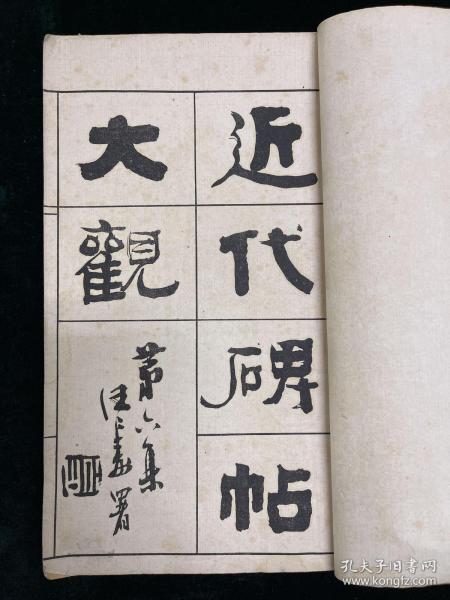 近代碑帖
大觀
第六集
汪大燮署
孔夫子旧书网
www.kongfz.com